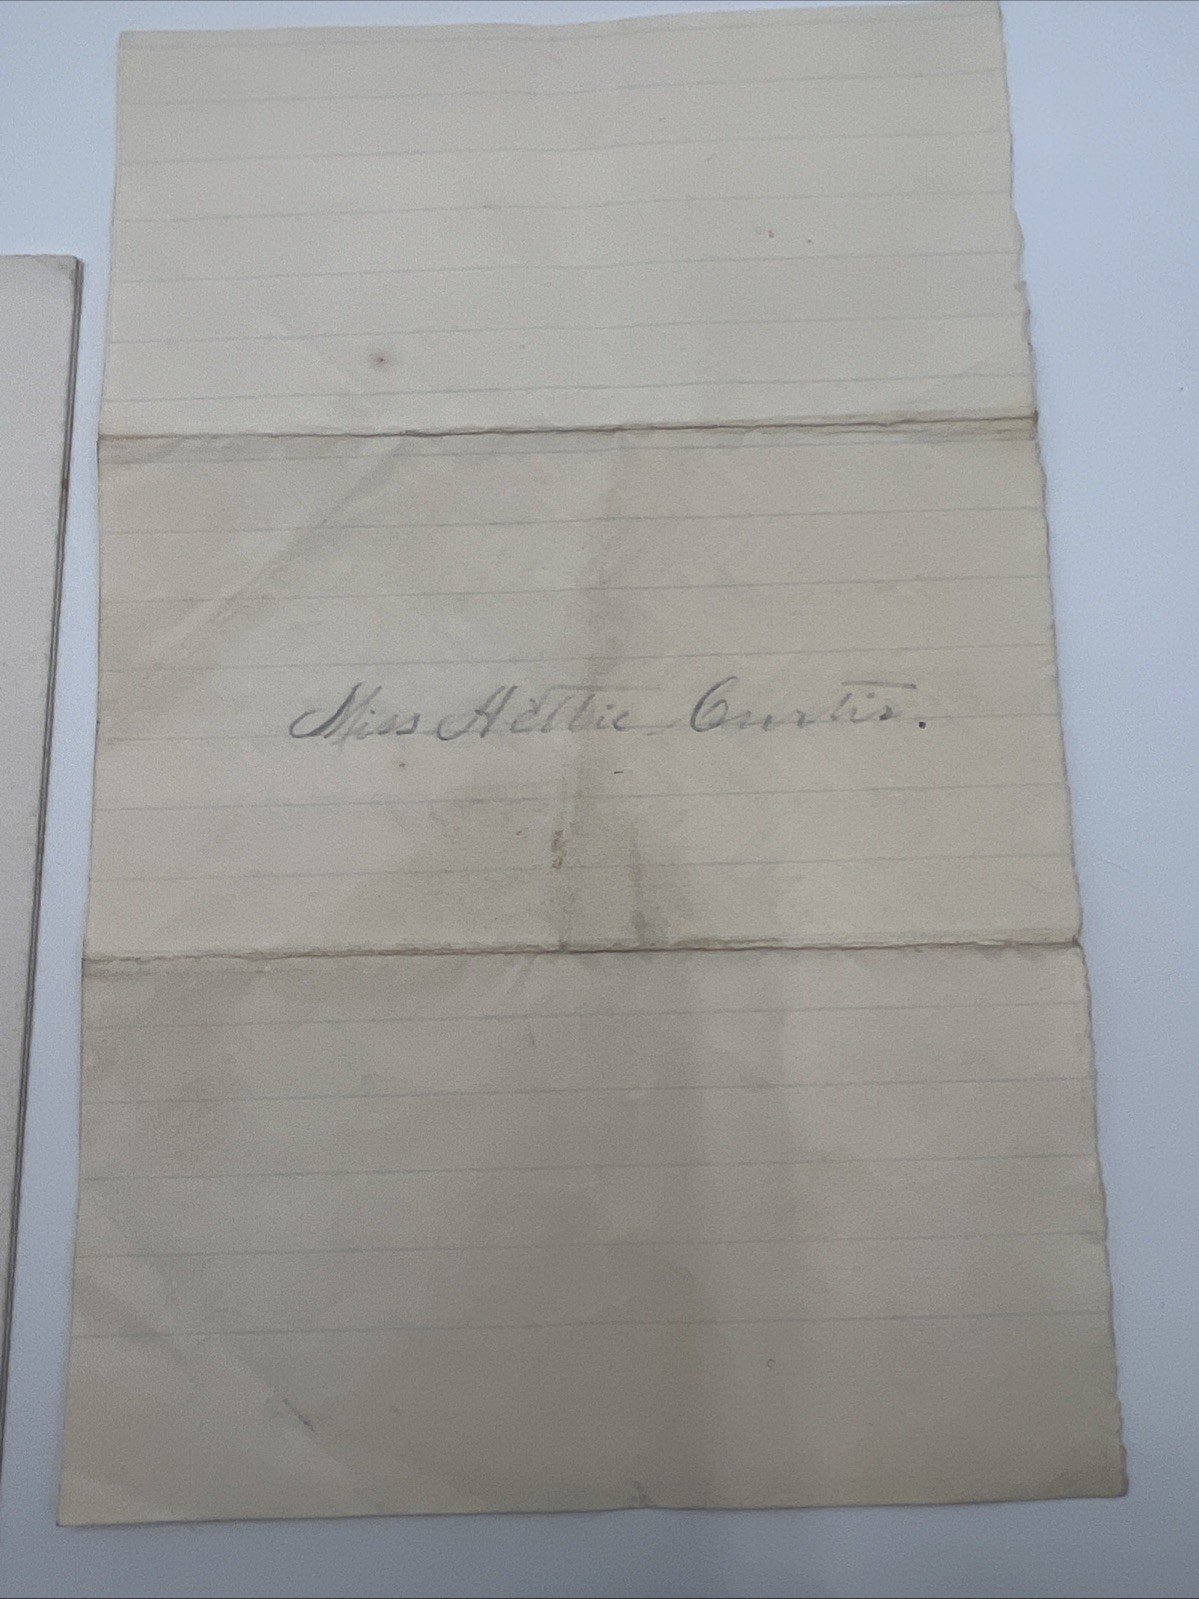 Miss Hettie Curtis.